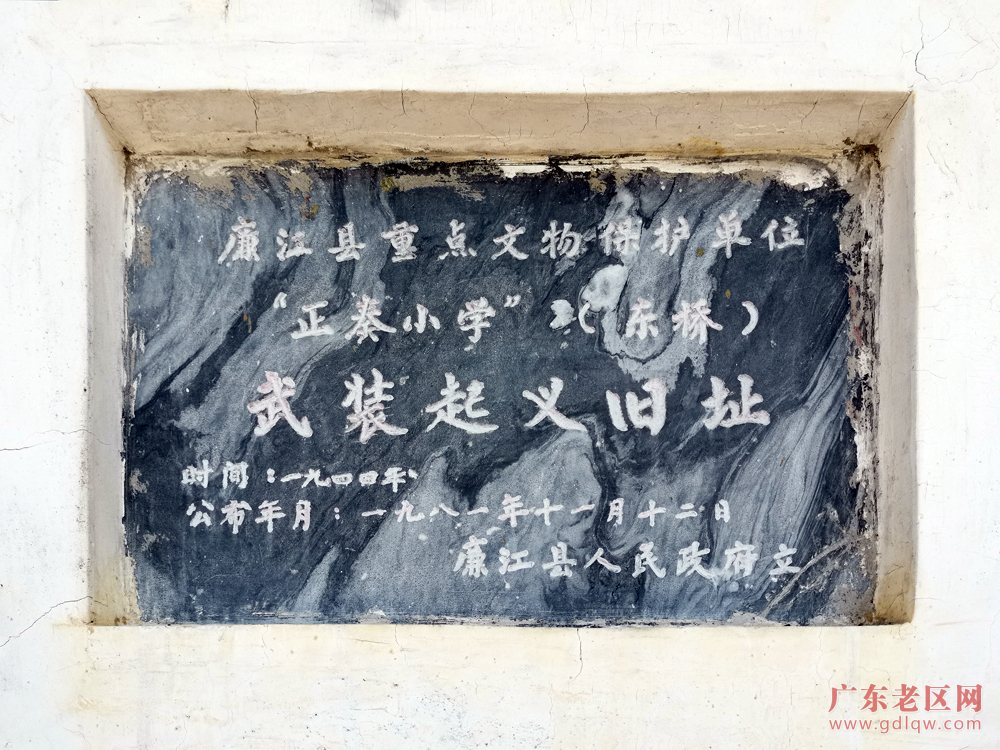 廉江县重点文物保护单位
“正奏小学” （东桥）
武装起义旧址
时间：一九四四年
公布年月：一九八一年十一月十二日
廉江县人民政府立
广东老区网
www.gdlqw.com